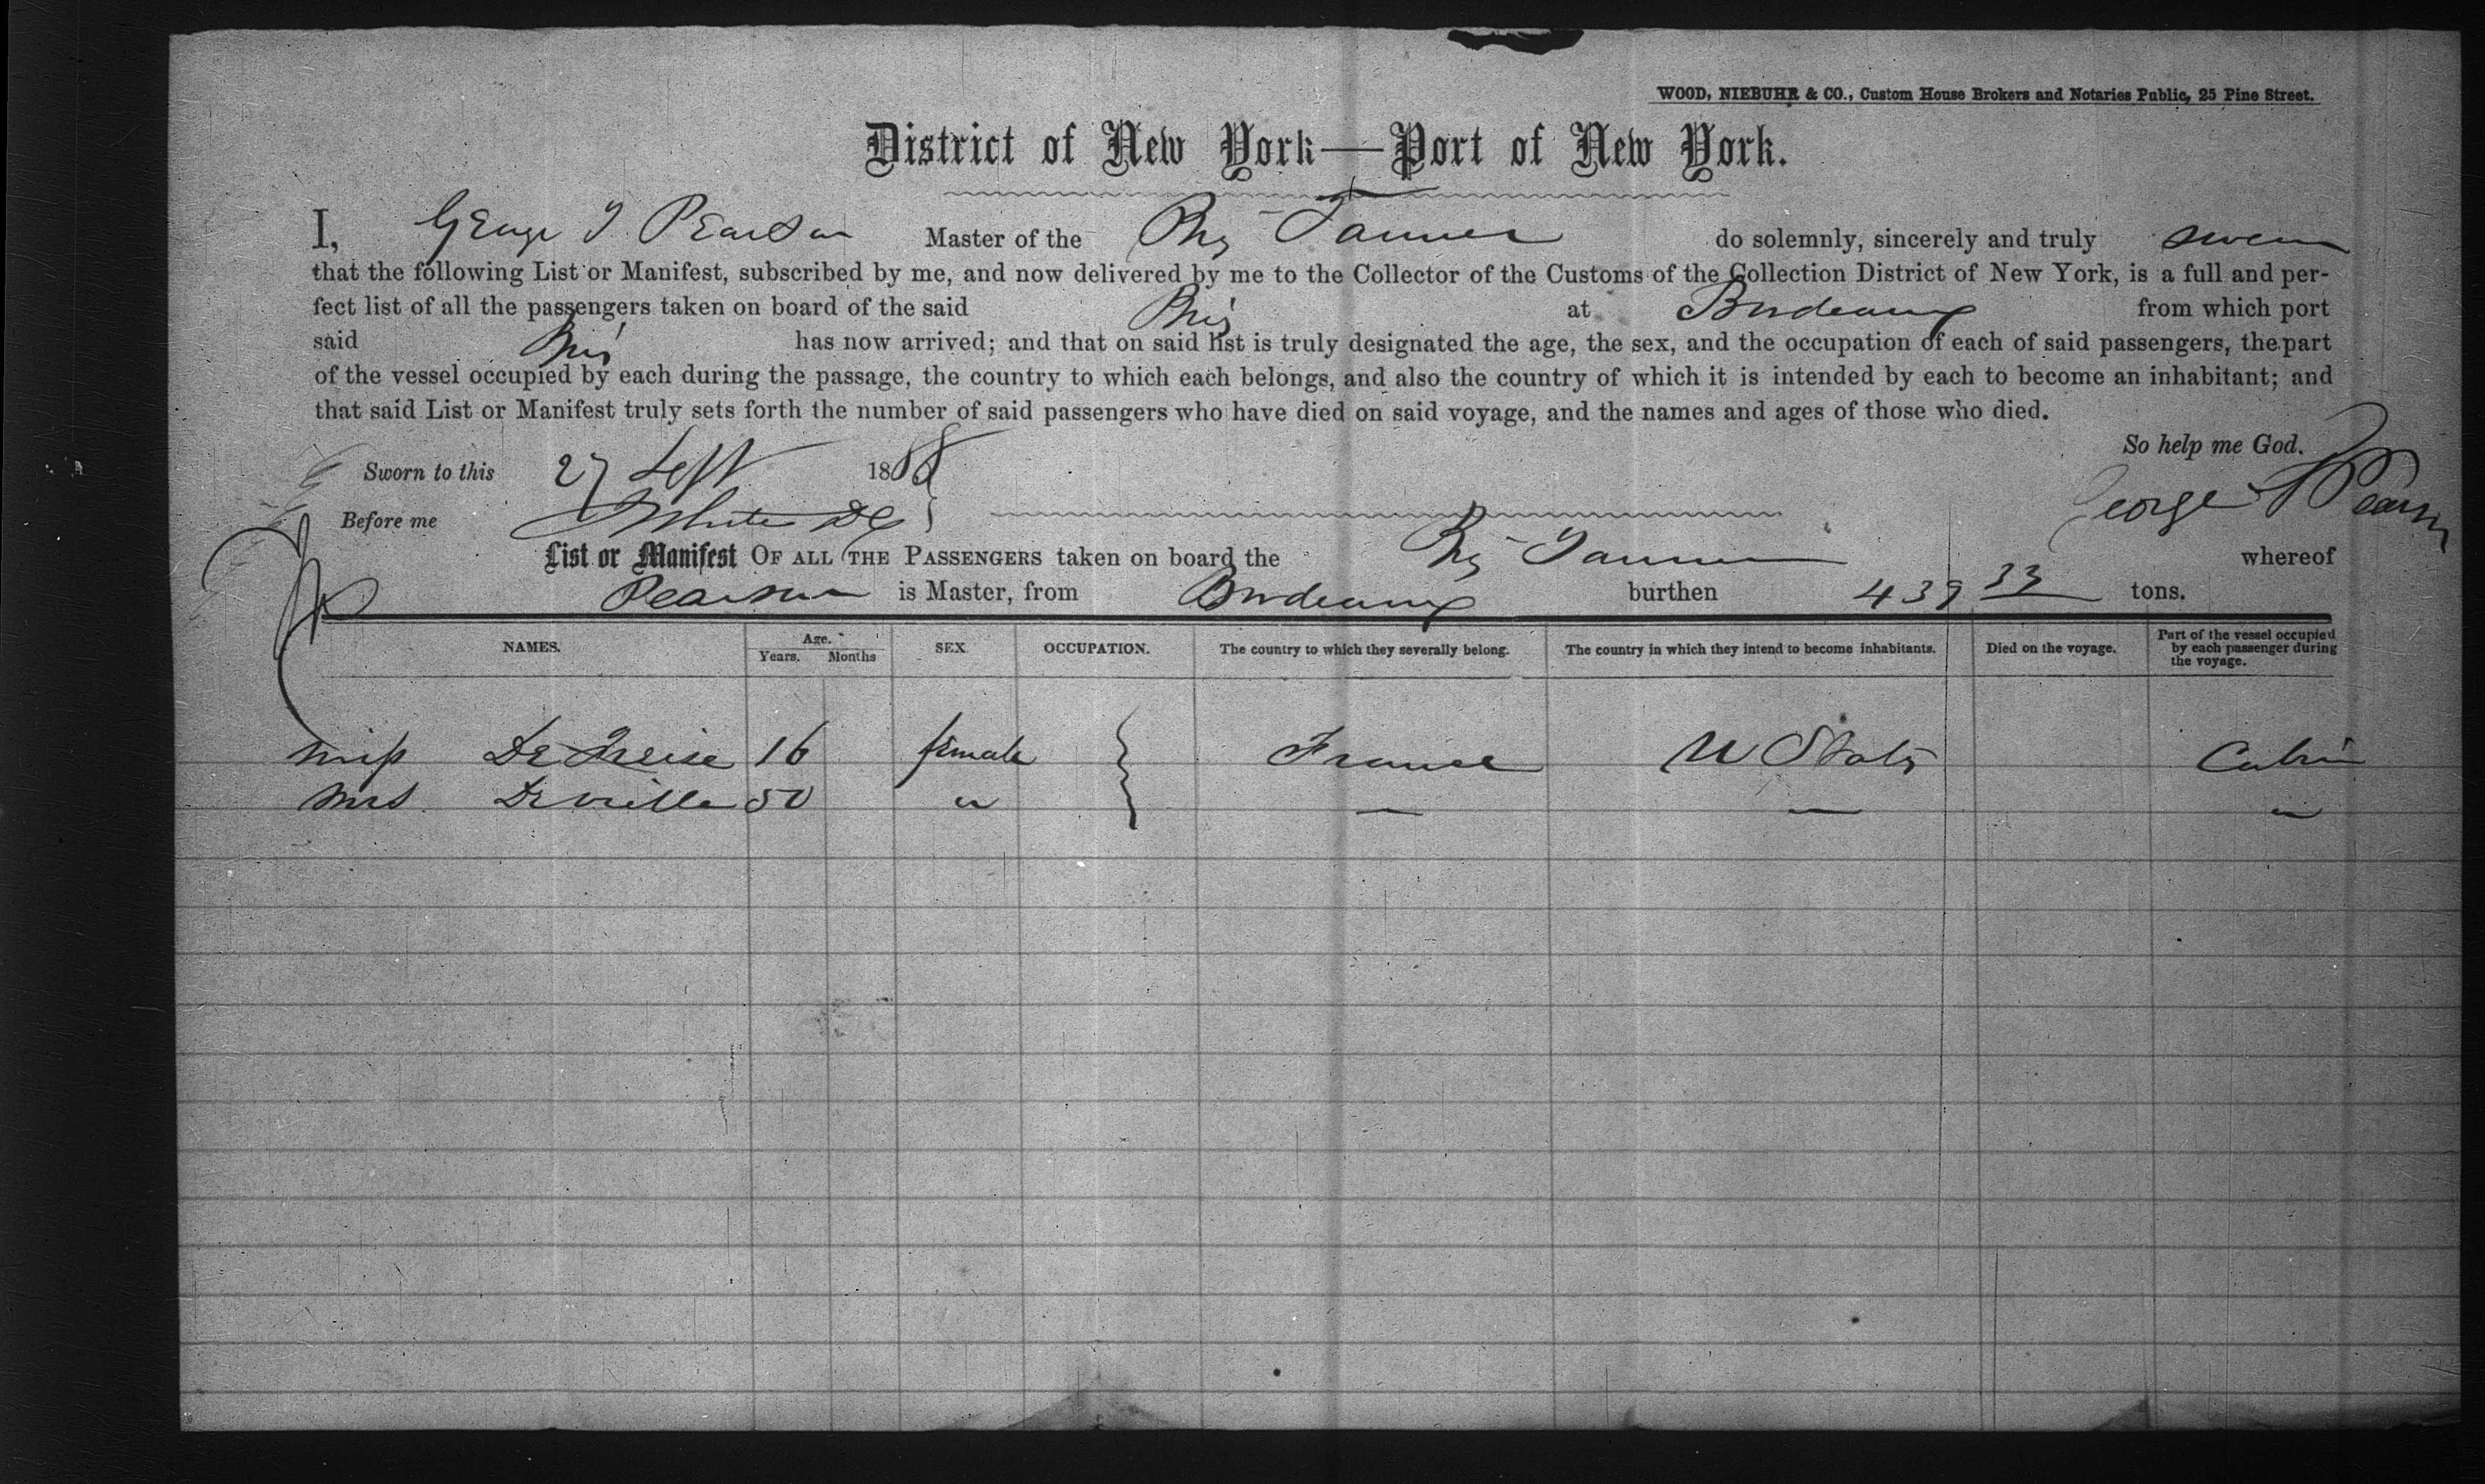 WOOD, NIEBUHR & CO., Custom House Brokers and Notaries Public, 25 Pine Street.
District of New York—Port of New York.
I, George T Pearson Master of the Brig Tanner do solemnly, sincerely and truly swear
that the following List or Manifest, subscribed by me, and now delivered by me to the Collector of the Customs of the Collection District of New York, is a full and per-
fect list of all the passengers taken on board of the said Brig at Bordeaux from which port
said Brig has now arrived; and that on said list is truly designated the age, the sex, and the occupation of each of said passengers, the part
of the vessel occupied by each during the passage, the country to which each belongs, and also the country of which it is intended by each to become an inhabitant; and
that said List or Manifest truly sets forth the number of said passengers who have died on said voyage, and the names and ages of those who died.
So help me God.
Sworn to this 27 Sept 1868
Before me White DC George T Pearson
List or Manifest OF ALL THE PASSENGERS taken on board the Brig Tanner whereof
Pearson is Master, from Bordeaux burthen 439 33 tons.
NAMES. Age. Years. Months SEX OCCUPATION. The country to which they severally belong. The country in which they intend to become inhabitants. Died on the voyage. Part of the vessel occupied by each passenger during the voyage.
Miss De 16 female France U States Cabin
Mrs Deville 50 " — — "